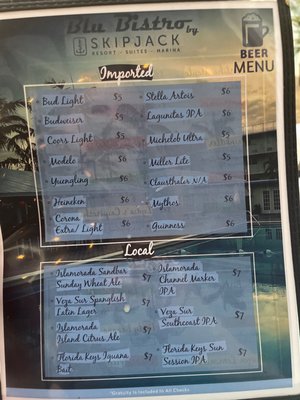 Blu Bistro by
SKIPJACK
RESORT · SUITES · MARINA
BEER
MENU
Imported
Bud Light $5
Stella Artois $6
Budweiser $5
Lagunitas IPA $6
Coors Light $5
Michelob Ultra $5
Modelo $6
Miller Lite $5
Yuengling $6
Clausthaler N/A $6
Heineken $6
Mythos $6
Corona
Extra/ Light $6
Guinness $6
Local
Islamorada Sandbar
Sunday Wheat Ale $7
Islamorada
Channel Marker
IPA $7
Veza Sur Spanglish
Latin Lager $7
Veza Sur
Southcoast IPA $7
Islamorada
Island Citrus Ale $7
Florida Keys Iguana
Bait $7
Florida Keys Sun
Session IPA $7
*Gratuity is Included to All Checks